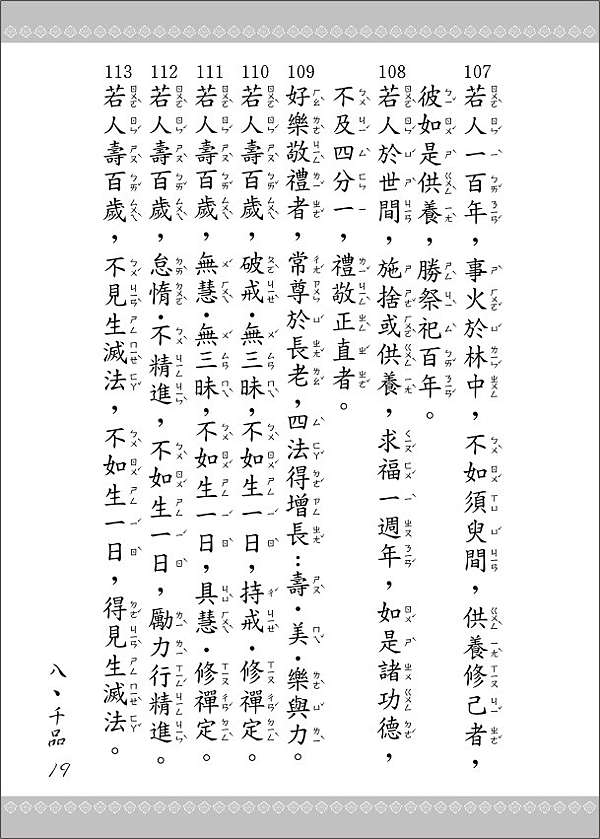 107 若人一百年，事火於林中，不如須臾間，供養修己者，
彼如是供養，勝祭祀百年。
108 若人於世間，施捨或供養，求福一週年，如是諸功德，
不及四分一，禮敬正直者。
109 好樂敬禮者，常尊於長老，四法得增長：壽·美·樂與力。
110 若人壽百歲，破戒·無三昧，不如生一日，持戒·修禪定。
111 若人壽百歲，無慧·無三昧，不如生一日，具慧·修禪定。
112 若人壽百歲，怠惰·不精進，不如生一日，勵力行精進。
113 若人壽百歲，不見生滅法，不如生一日，得見生滅法。
八、千品 19